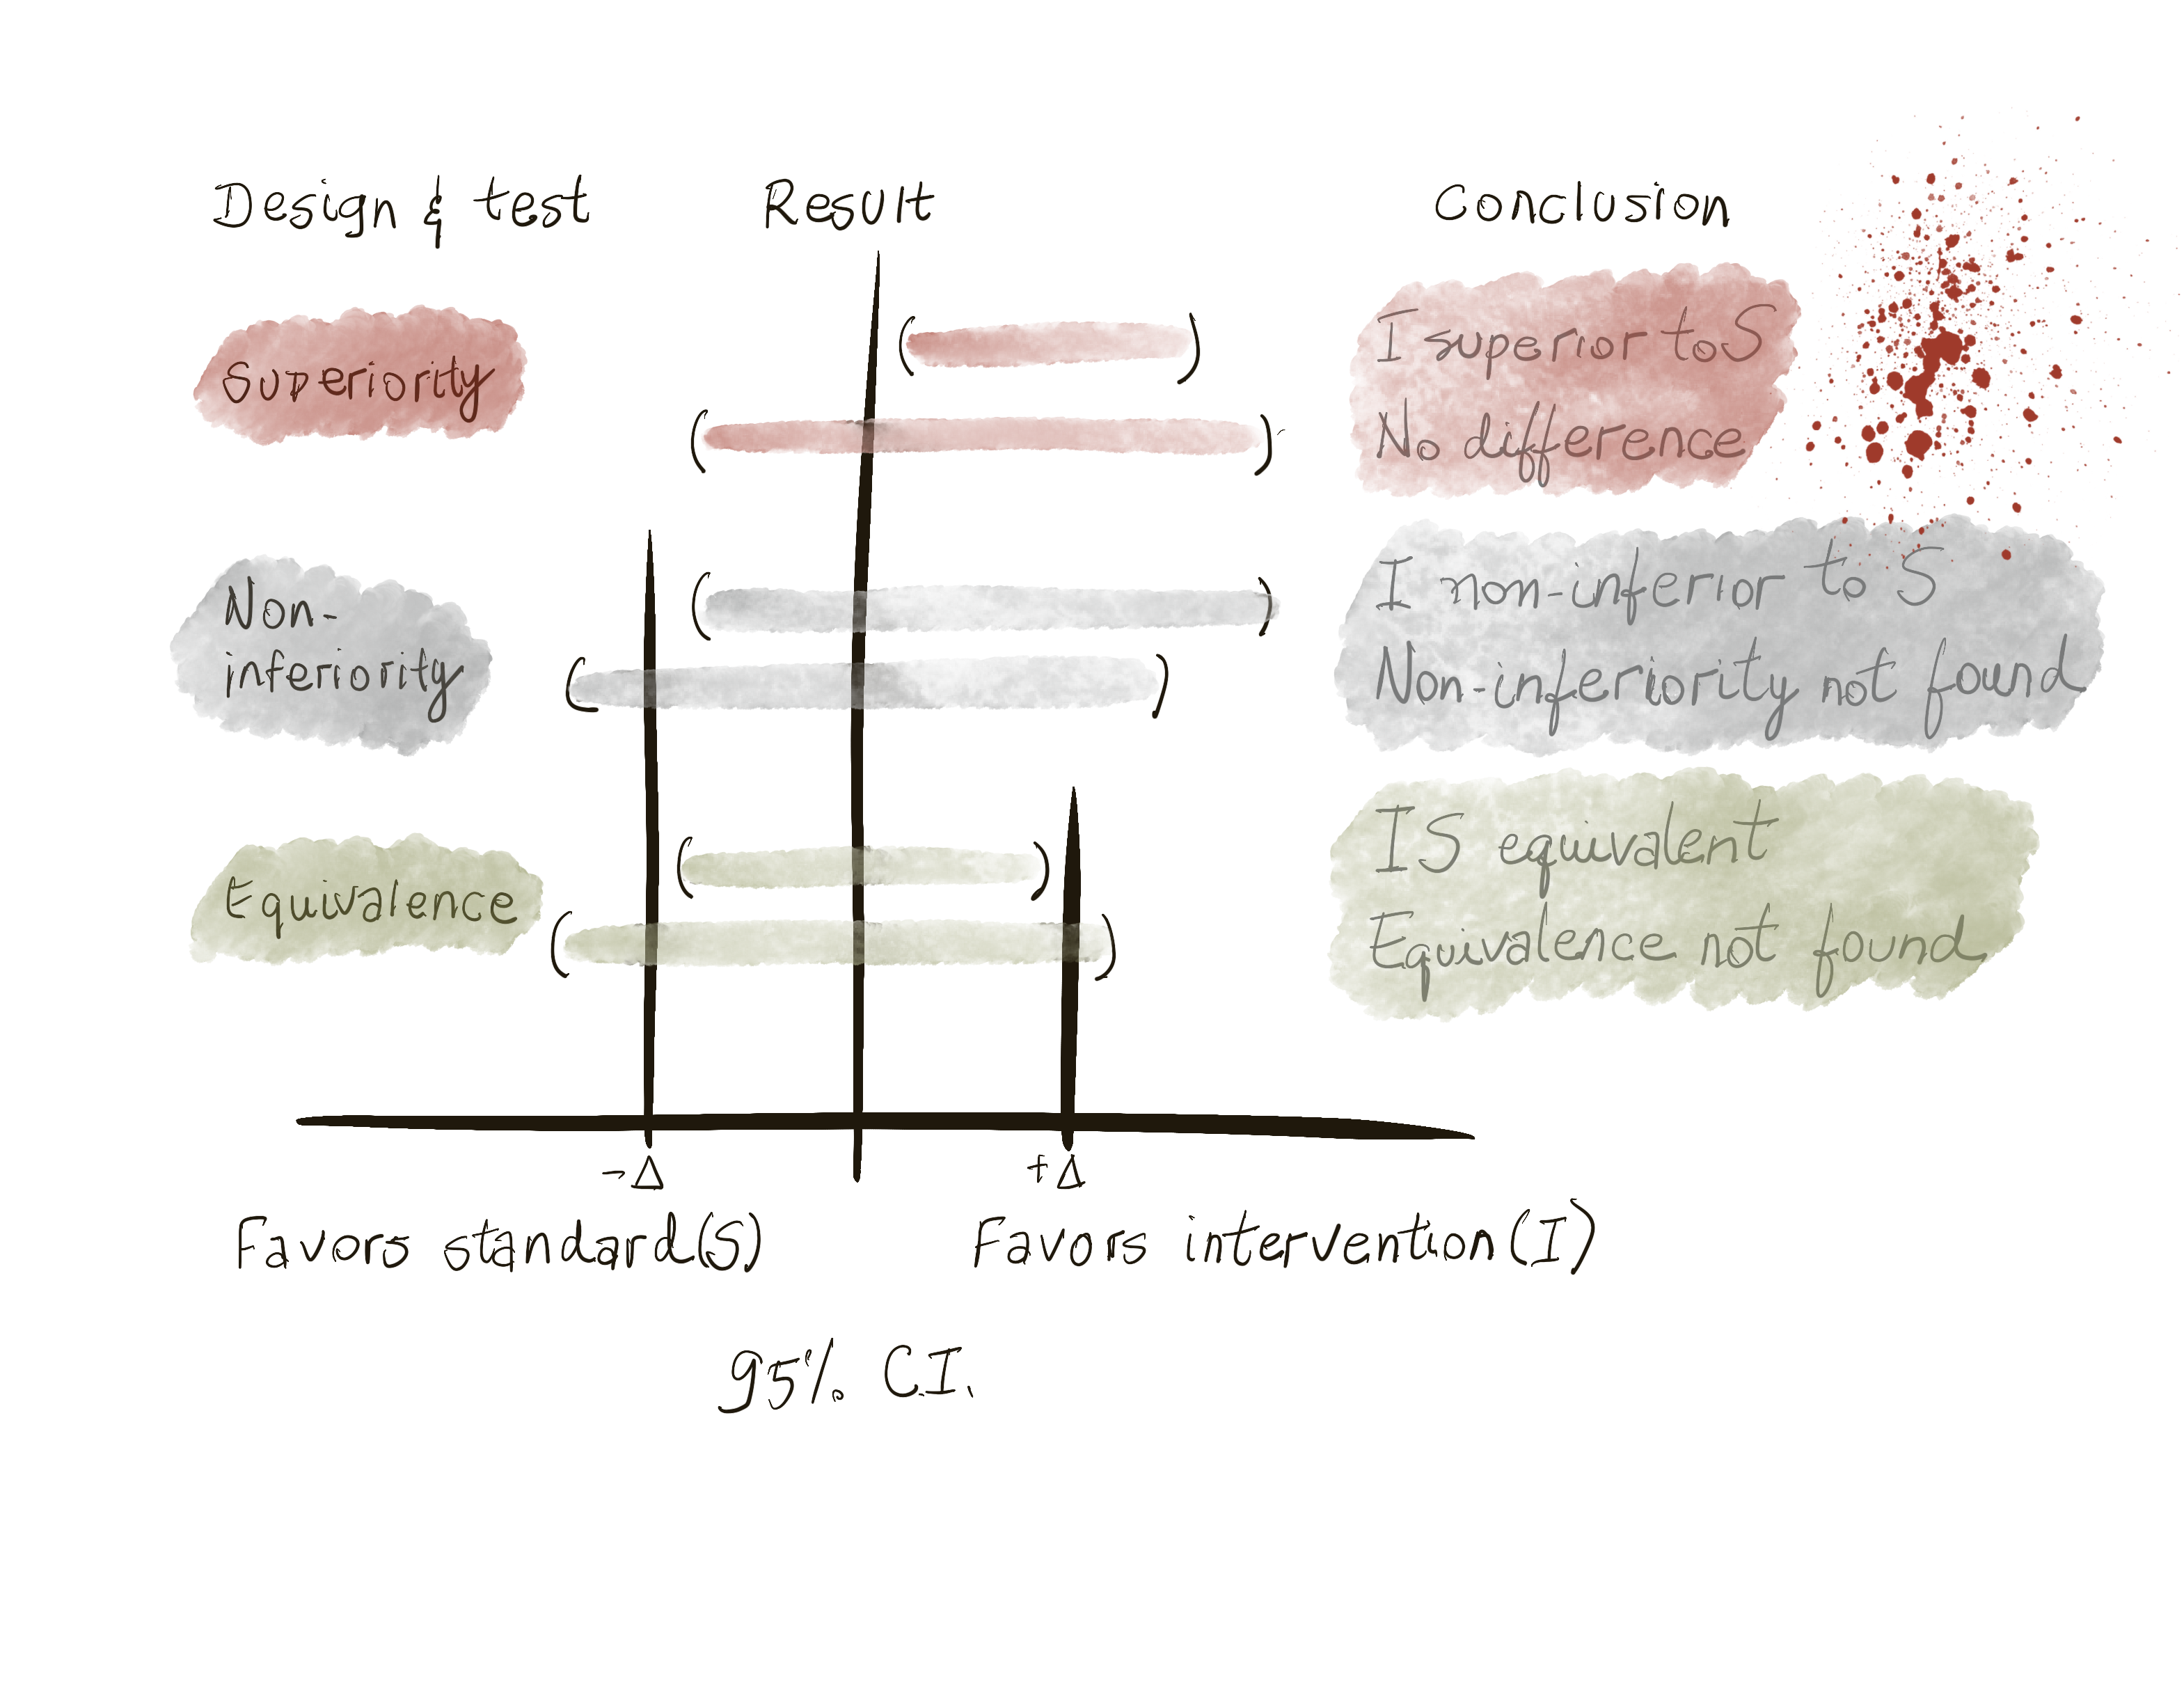 Design & test
Result
Conclusion
Superiority
I superior to S
No difference
Non-
inferiority
I non-inferior to S
Non-inferiority not found
Equivalence
IS equivalent
Equivalence not found
-Δ
+Δ
Favors standard(S)
Favors intervention(I)
95% C.I.